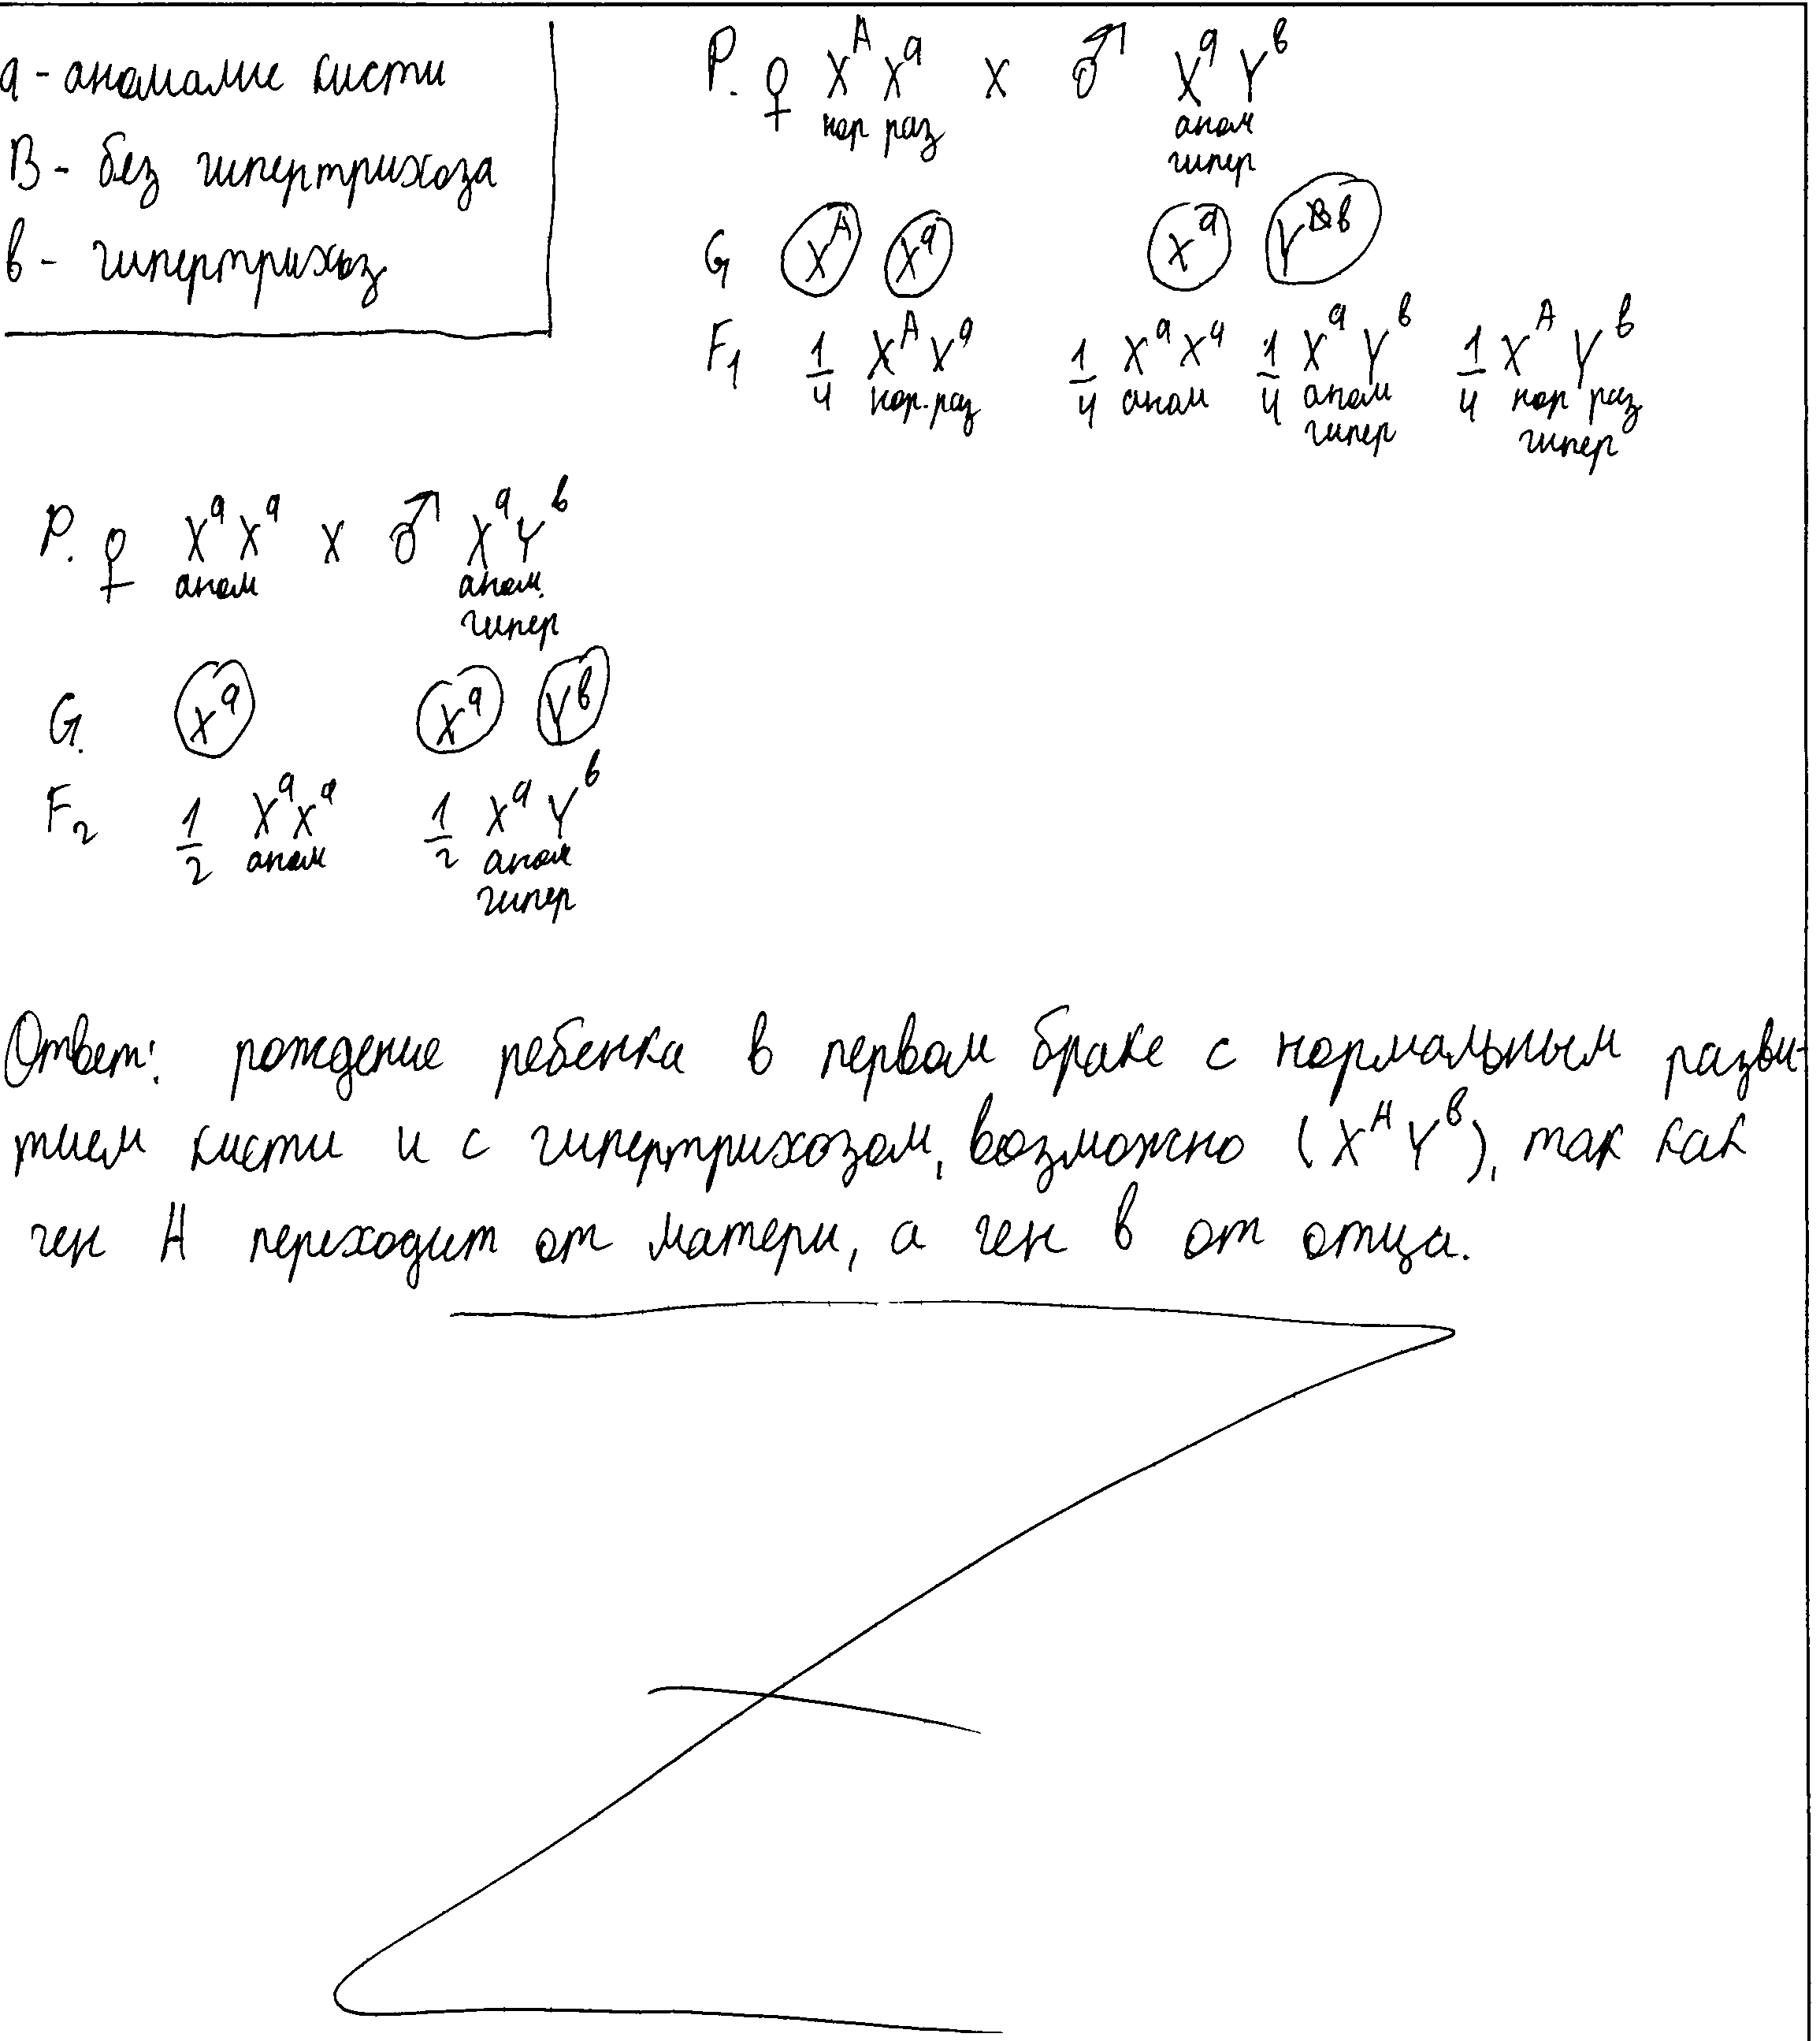 a - аномалие кисти
B - без гипертрихоза
в - гипертрихоз
P. ♀ X^A X^a x ♂ X^a Y^в
нор раз аном
гипер
G X^A X^a X^a Y^в
F1 1/4 X^A X^a 1/4 X^a X^a 1/4 X^a Y^в 1/4 X^A Y^в
нор. раз аном аном нор раз
гипер гипер
P. ♀ X^a X^a x ♂ X^a Y^в
аном аном.
гипер
G. X^a X^a Y^в
F2 1/2 X^a X^a 1/2 X^a Y^в
аном аном
гипер
Ответ: рождение ребенка в первом браке с нормальным разви-
тием кисти и с гипертрихозом, возможно (X^A Y^в), так как
ген A переходит от матери, а ген в от отца.